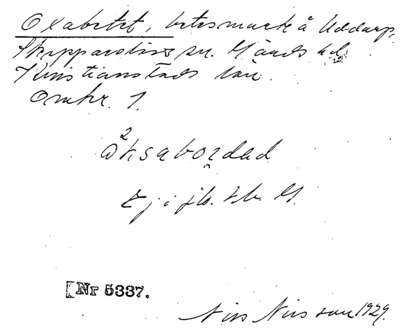 Oxabetet, betesmark å Uddarp,
Skepparslövs sn. Gärds hd.
Kristianstads län.
Omkr. 1.
Ej i jb.
[Nr 5337.
Nils Nilsson 1929.